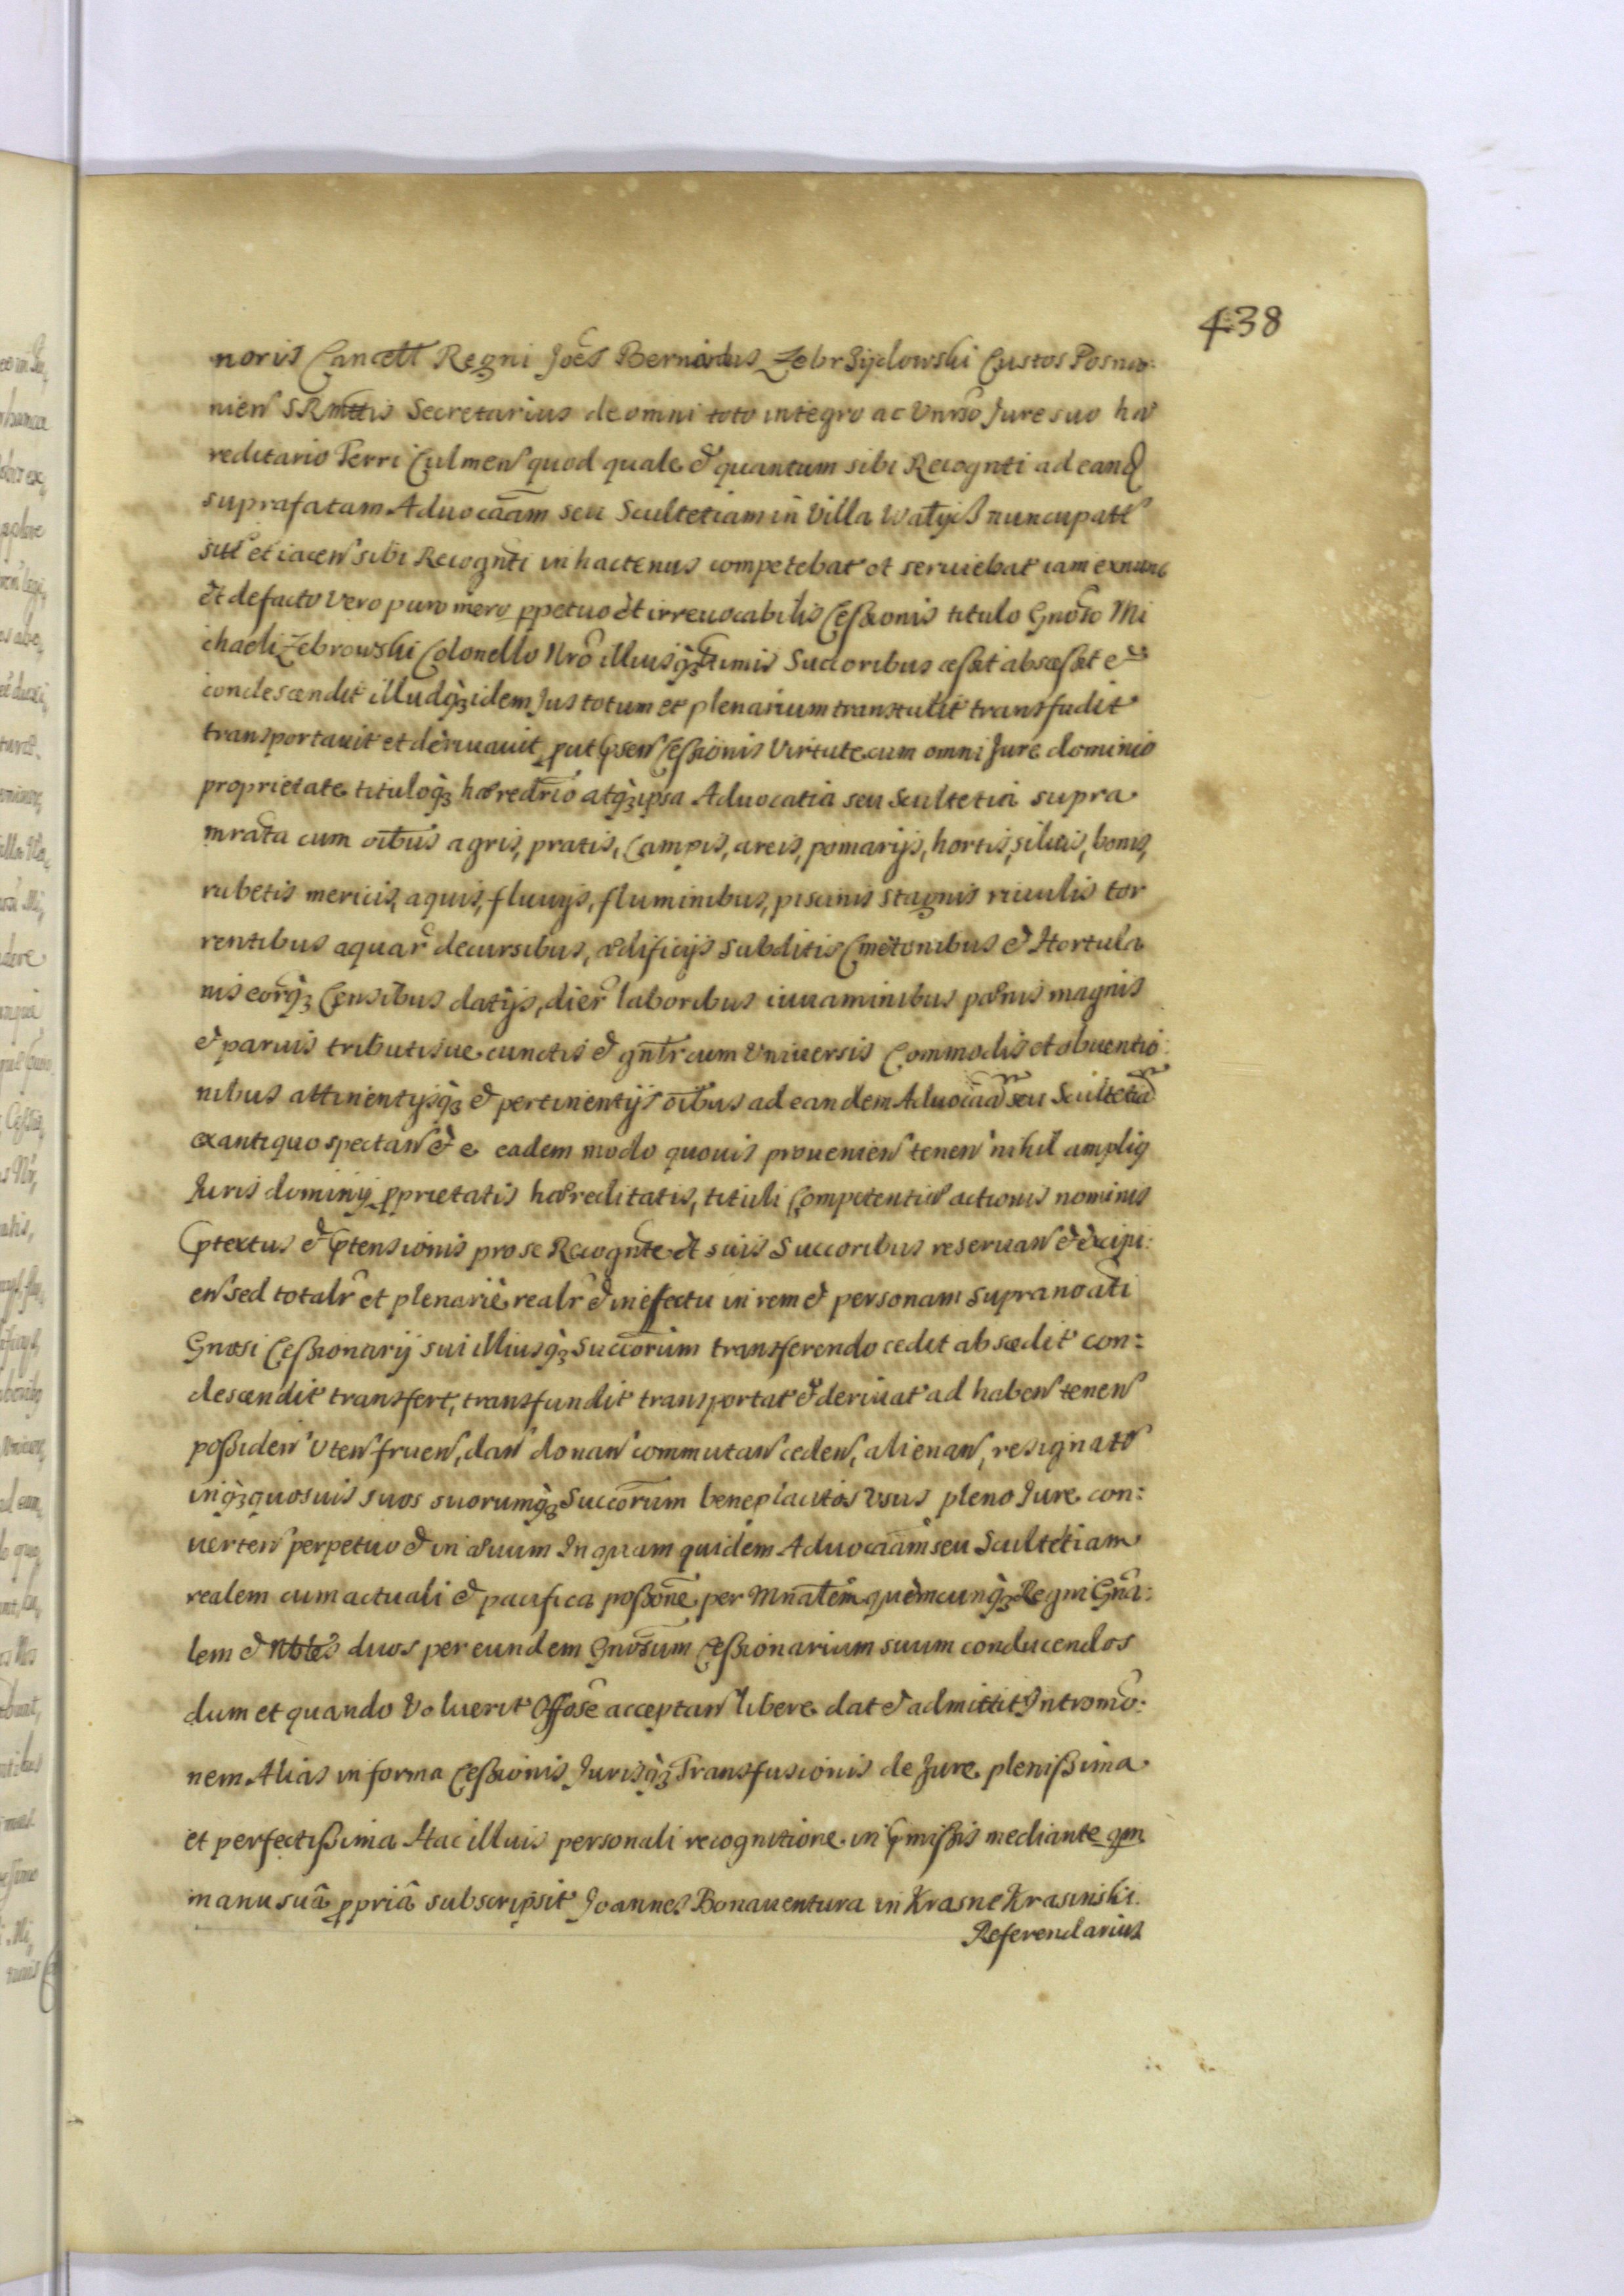 438
noris Cancell Regni Joēs Bernardus Zebrzÿdowski Custos Posna:
nien SRMttis Secretarius de omni toto integro ac Vnrso Jure suo hæ
reditario Terri Culmen quod quale et quantum sibi Recognti ad eand
suprafatam Aduocaām seu Scultetiam in Villa Watÿcz nuncupatt
sitt et iacen sibi Recognti in hactenus competebat et seruiebat iam exnunc
et defacto vero puro mero ppetuo et irreuocabilis Cessionis titulo Gnoso Mi
chaeli Zebrowski Colonello Nro illiusq3 ltimis Succoribus cessit abscessit et
condescendit illudq3 idem Jus totum et plenarium transtulit transfudit
transportauit et deriuauit put psen Cessionis Virtute cum omni Jure dominio
proprietate tituloq3 hæredrio atq3 ipsa Aduocatia seu Scultetia supra
mrata cum oibus agris, pratis, Campis, areis, pomarijs, hortis, siluis, bonis,
rubetis mericis, aquis, fluuijs, fluminibus, piscinis stagnis riuulis tor
rentibus aquar decursibus, ædificijs subditis Cmetonibus et Hortula
nis eorq3 Censibus datijs, dier laboribus iuuaminibus pænis magnis
et paruis tributisue cunctis et gnlr cum Vniuersis Commodis et obuentio:
nibus attinentijsq3 et pertinentijs oibus ad eandem Aduocaam seu Scultetiam
exantiquo spectan et e eadem modo quouis prouenien tenen nihil ampliq
Juris dominij pprietatis hæreditatis, tituli Competentiæ actionis nominis
Ptextus et Ptensionis pro se Recognte et suis Succoribus reseruan et excipi:
en sed totalr et plenarie realr et in effectu in rem et personam supranoati
Gnosi Cessionarij sui illiusq3 Succorum transferendo cedit abscedit con:
descendit transfert, transfundit transportat et deriuat ad haben tenen
possiden Vten fruen, dan donan commutan ceden, alienan, resignan
inq3 quosuis suos suorumq3 Succorum beneplacitos Vsus pleno Jure con:
uerten perpetuo et in æuum In quam quidem Aduocaam seu Scultetiam
realem cum actuali et pacifica possone per Mnalem quemcunq3 Regni Gna:
lem et Nbles duos per eundem Gnosum Cessionarium suum conducendos
dum et quando Voluerit Offose acceptan libere dat et admittit Intromo:
nem Alias in forma Cessionis Jurisq3 Transfusionis de Jure plenissima
et perfectissima Hac illuis personali recognitione in pmissis mediante qm
manu suâ ppriâ subscripsit Joannes Bonauentura in Krasne Krasinski.
Referendarius